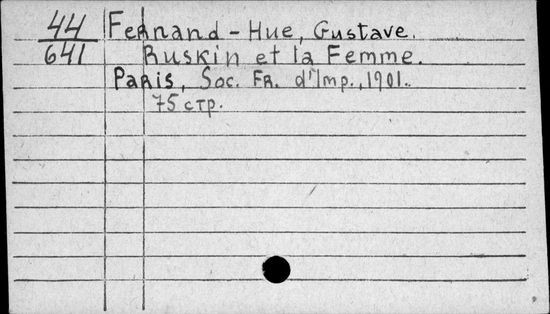 44 Fernand - Hue, Gustave.
641 Ruskin et la Femme.
Paris, Soc. Fr. d'Imp., 1901.
75 стр.